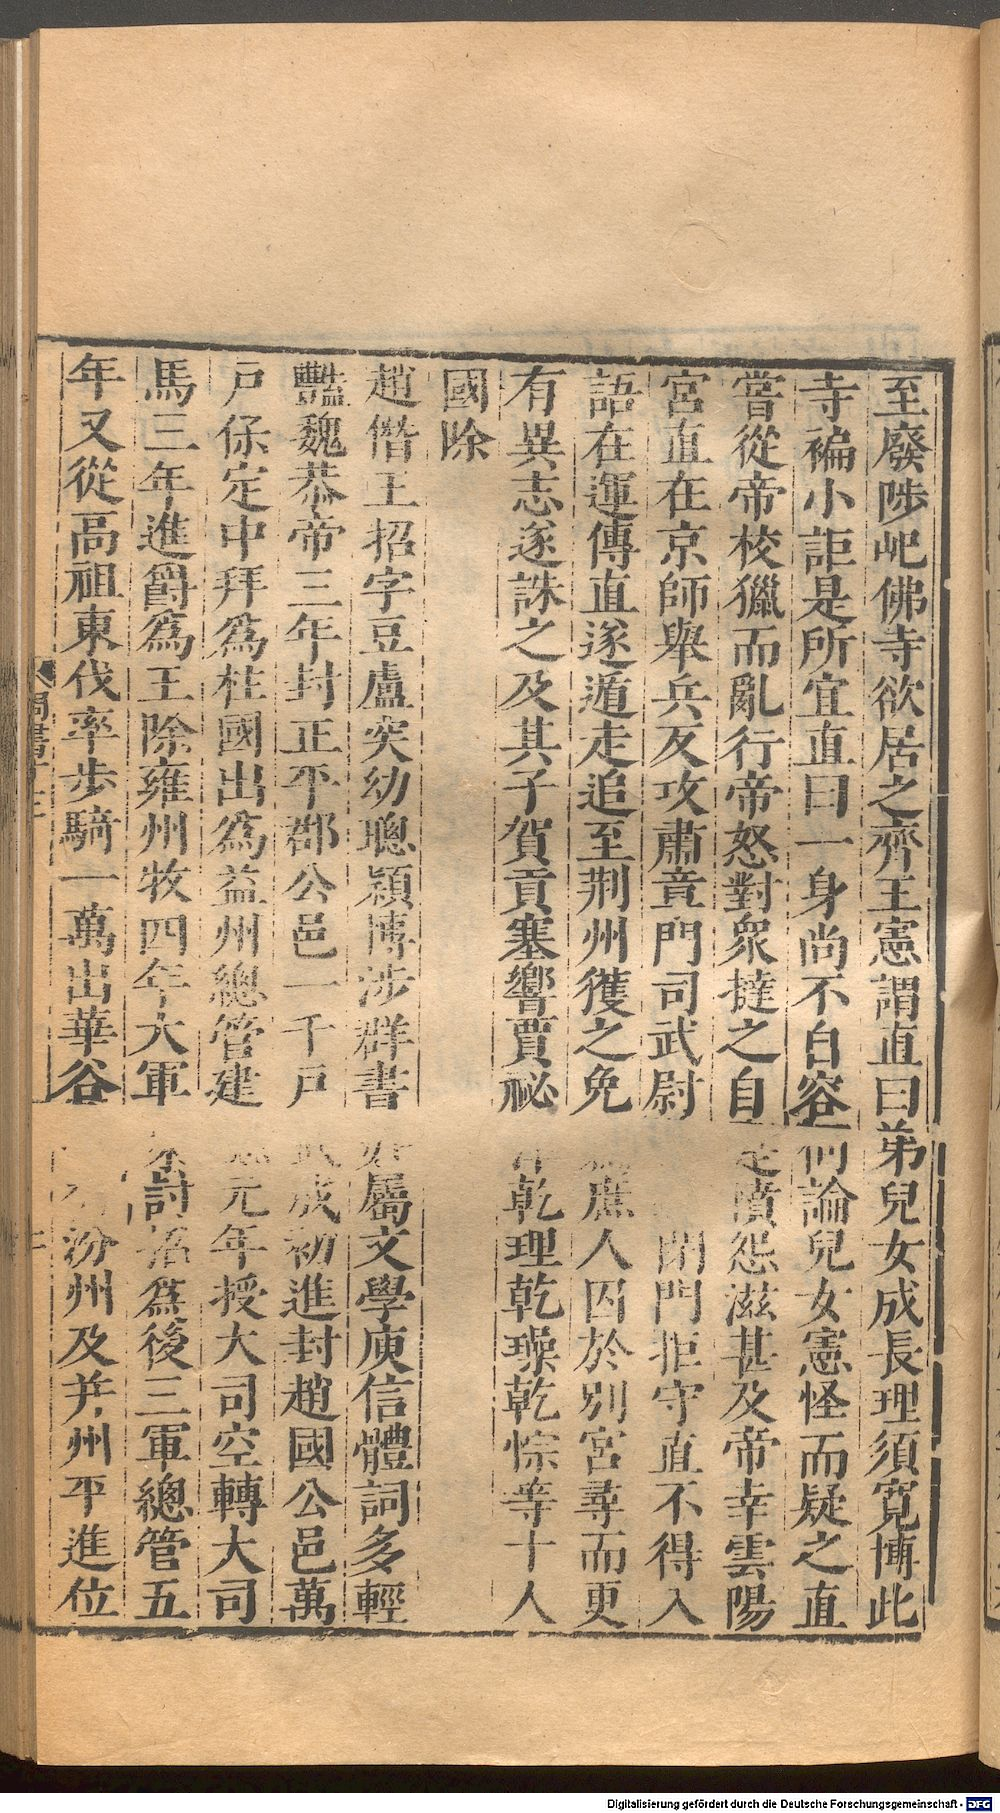 至廢陟屺佛寺欲居之齊王憲謂直曰弟兒女成長理須寬博此
寺褊小詎是所宜直曰一身尚不自容何論兒女憲怪而疑之直
嘗從帝校獵而亂行帝怒對衆撻之自是憤怨滋甚及帝幸雲陽
宮直在京師舉兵反攻肅章門司武尉閉門拒守直不得入
語在運傳直遂遁走追至荆州獲之免庶人囚於別宮尋而更
有異志遂誅之及其子賀貢塞響賈祕乾理乾璪乾悰等十人
國除
趙僭王招字豆盧突幼聰穎博涉群書好屬文學庾信體詞多輕
豔魏恭帝三年封正平郡公邑一千戶武成初進封趙國公邑萬
戶保定中拜爲柱國出爲益州總管建德元年授大司空轉大司
馬三年進爵爲王除雍州牧四年大軍東討招爲後三軍總管五
年又從高祖東伐率步騎一萬出華谷汾州及并州平進位
周書
Digitalisierung gefördert durch die Deutsche Forschungsgemeinschaft - DFG